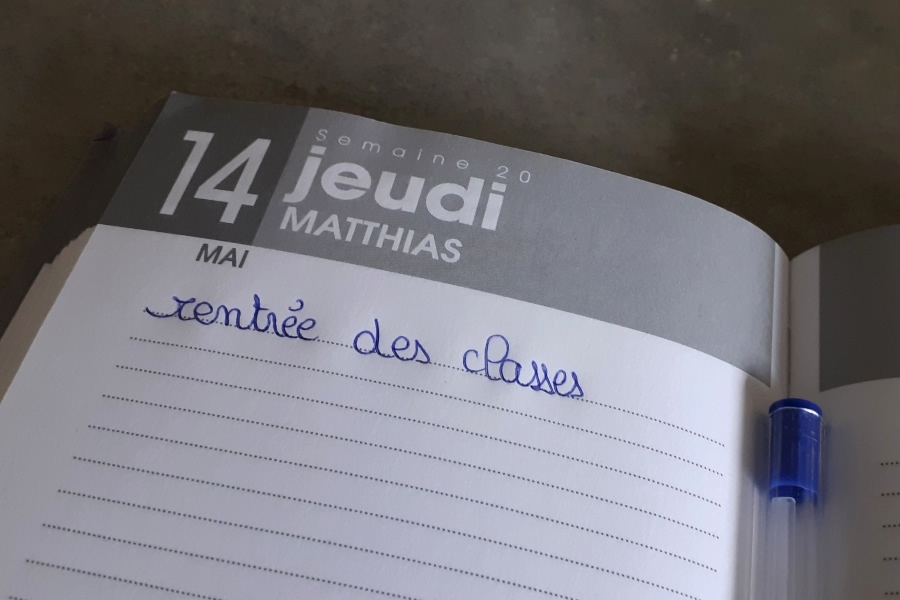 Semaine 20
14 jeudi
MATTHIAS
MAI
rentrée des classes